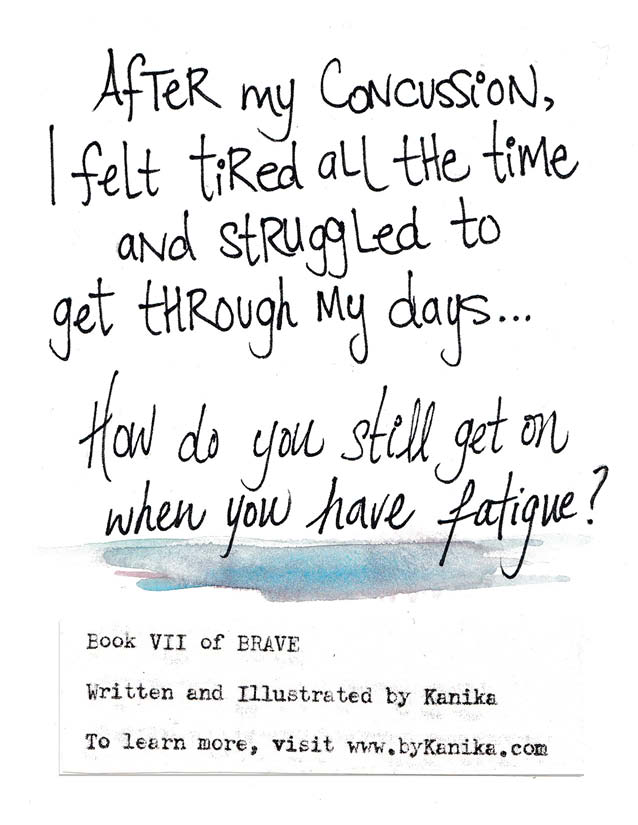 After my Concussion,
I felt tired all the time
and struggled to
get through my days...
How do you still get on
when you have fatigue?
Book VII of BRAVE
Written and Illustrated by Kanika
To learn more, visit www.byKanika.com